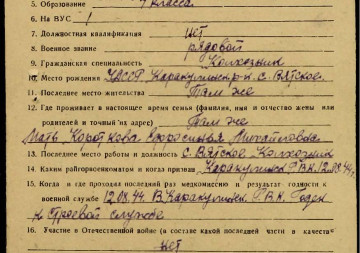 5. Образование 4 класса
6. На ВУС 1
7. Должностная квалификация нет
8. Военное звание рядовой
9. Гражданская специальность Колхозник
10. Место рождения УАССР Каракулинск. р-н. с. Вятское.
11. Последнее место жительства Там же
12. Где проживает в настоящее время семья (фамилия, имя и отчество жены или
родителей и точный их адрес) Там же
Мать Короткова Ефросинья Михайловна
13. Последнее место работы и должность с. Вятское Колхозник
14. Каким райгорвоенкоматом и когда призван Каракулинск РВК 12.08.44г.
15. Когда и где проходил последний раз медкомиссию и результат годности к
военной службе 12.08.44. В Каракулинск. РВК. Годен
к строевой службе
16. Участие в Отечественной войне (в составе какой последней части и в качестве
нет